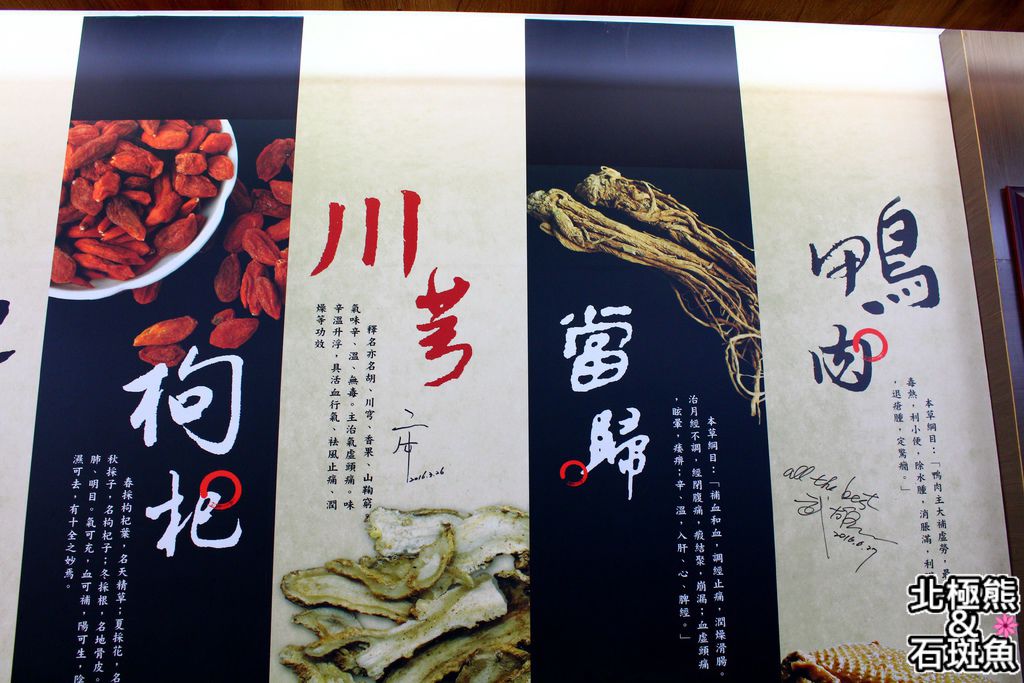 鴨肉
本草綱目：「鴨肉主大補虛勞，最
毒熱，利小便，除水腫，消脹滿，利
，退瘡腫，定驚癇。」
all the best
2016.6.27
當歸
本草綱目：「補血和血，調經止痛，潤燥滑腸
治月經不調，經閉腹痛，癥瘕結聚，崩漏；血虛頭痛
，眩暈，痿痹；辛、溫，入肝、心、脾經。」
川芎
釋名亦名胡、川穹、香果、山鞠窮。
氣味辛、溫、無毒。主治氣虛頭痛。味
辛溫升浮，具活血行氣、祛風止痛、潤
燥等功效
2016.3.26
枸杞
春採枸杞葉，名天精草；夏採花，名
秋採子，名枸杞子；冬採根，名地骨皮。
肺、明目。氣可充，血可補，陽可生，陰
濕可去，有十全之妙焉。
北極熊
&
石斑魚